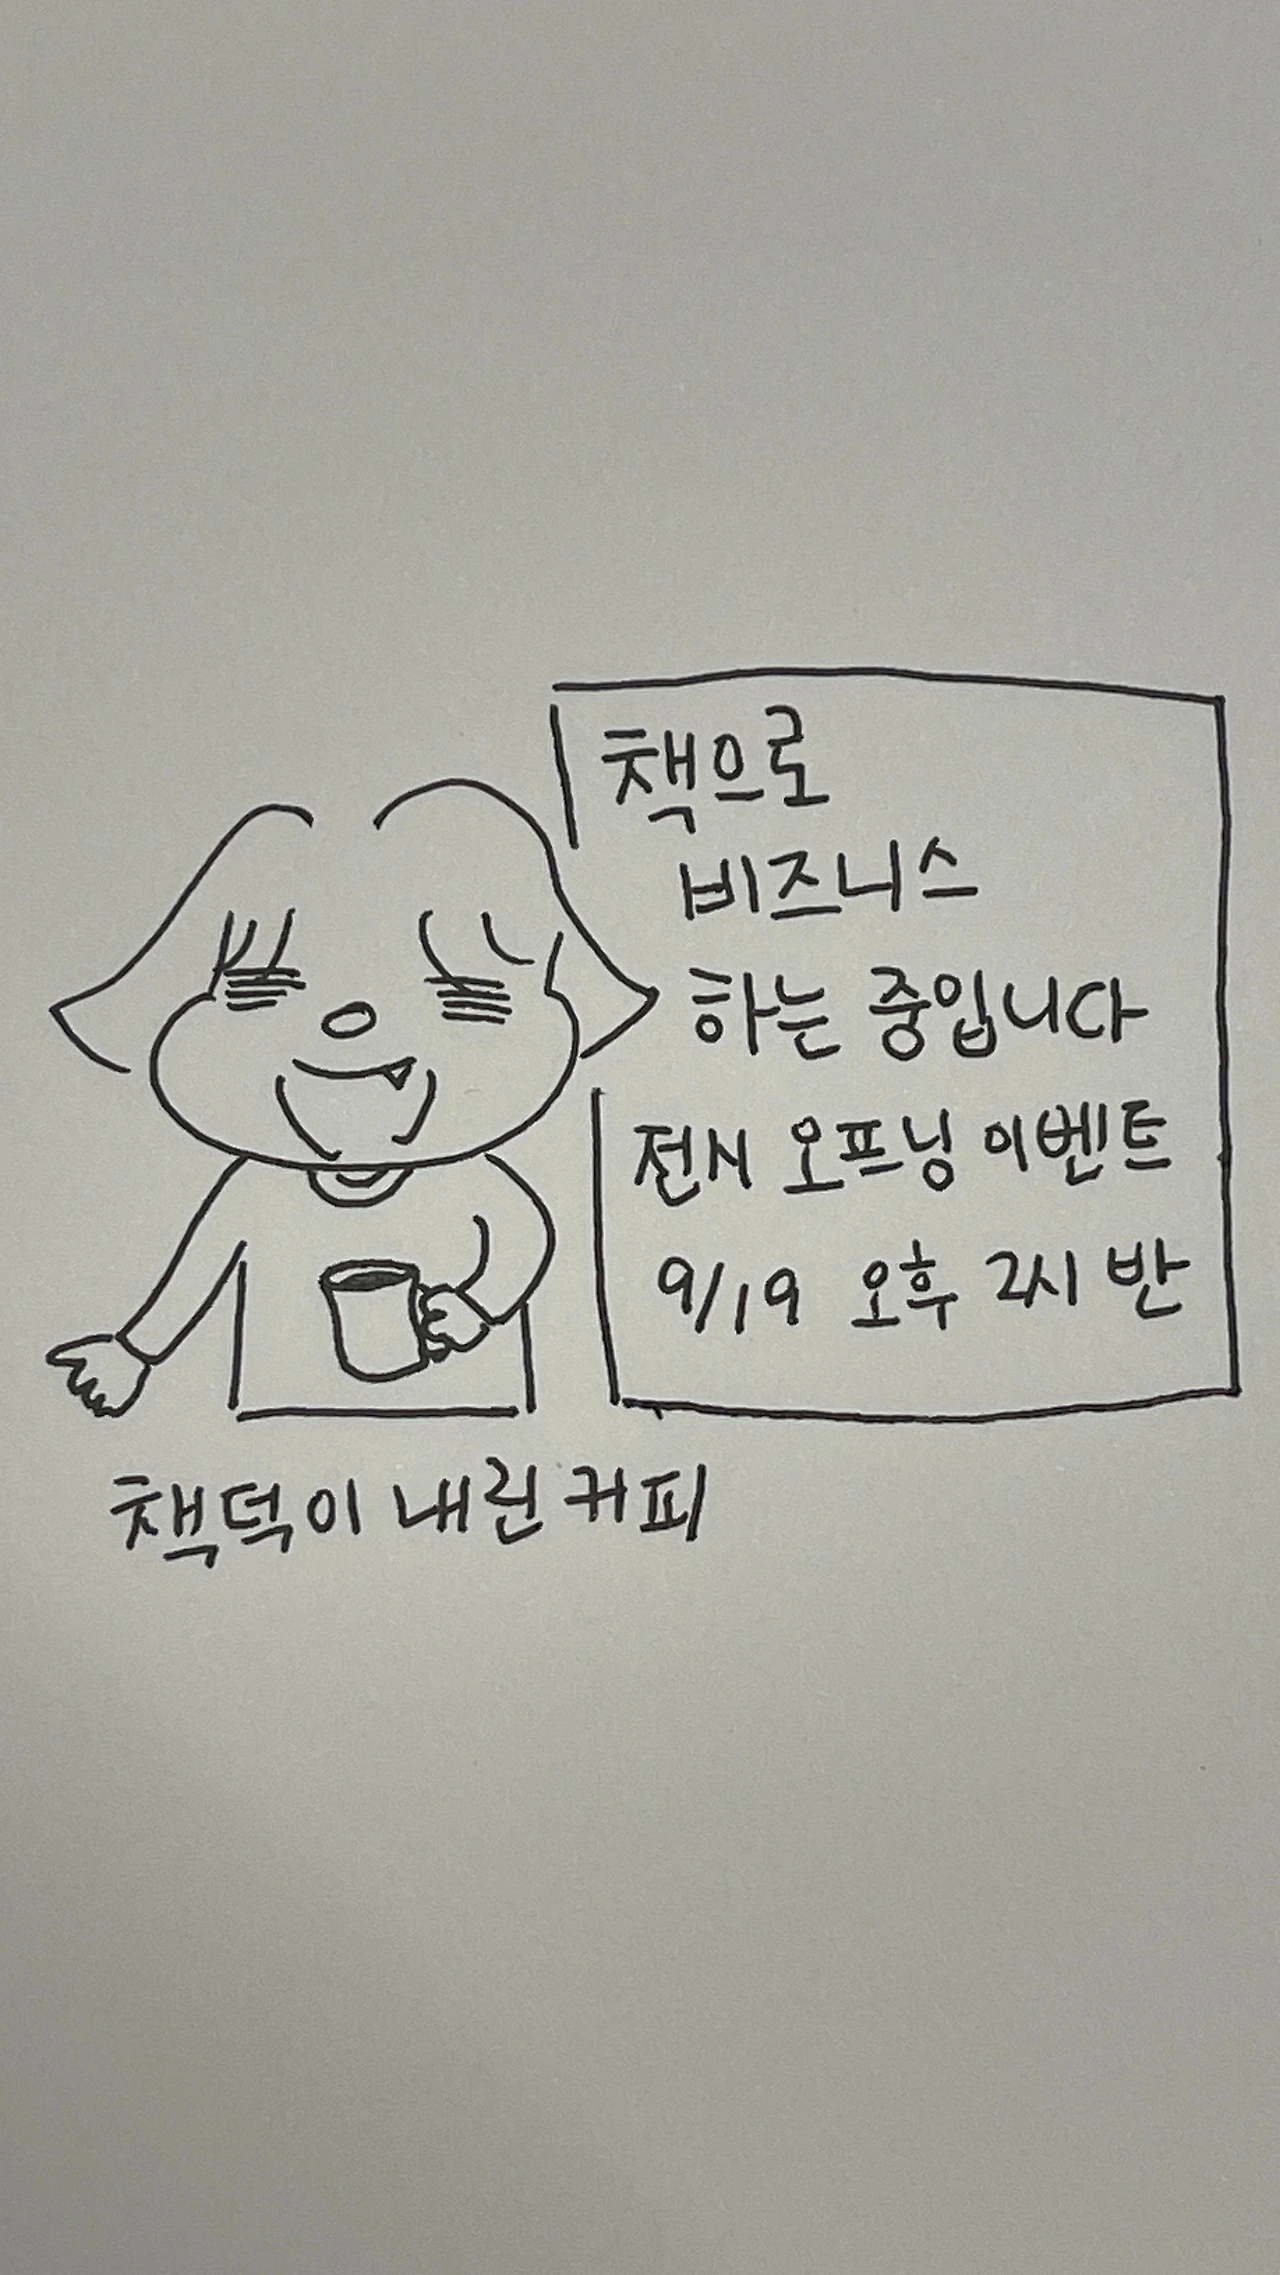 책으로
비즈니스
하는 중입니다
전시 오프닝 이벤트
9/19 오후 2시 반
책덕이 내린 커피